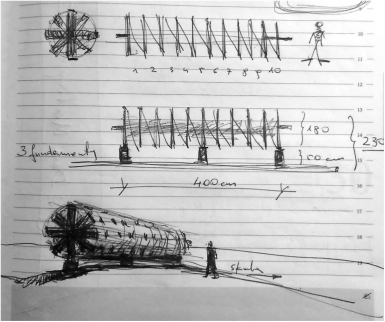 1 2 3 4 5 6 7 8 9 10
180
230
3 fundamenty
50 cm
400 cm
skała
10
11
12
13
14
15
16
17
18
19